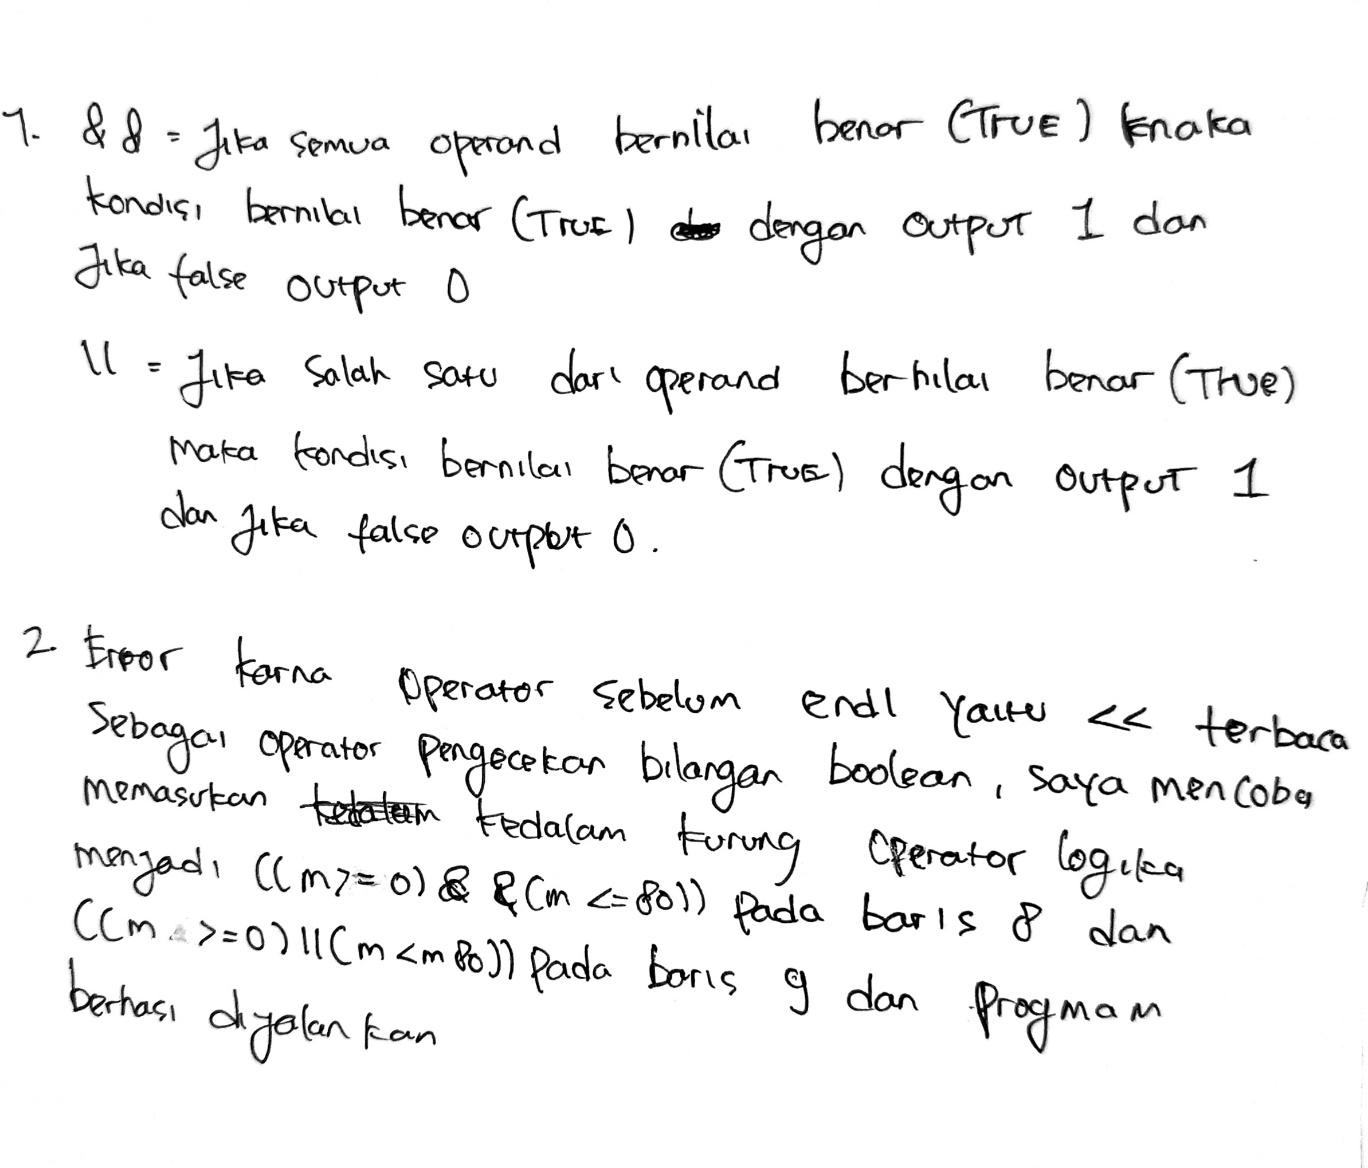 1. && = Jika semua operand bernilai benar (TrUE) maka
kondisi bernilai benar (TrUE) dengan output 1 dan
Jika false output 0
|| = Jika Salah satu dari operand bernilai benar (True)
maka kondisi bernilai benar (TrUE) dengan output 1
dan Jika false output 0.
2. Error karna operator sebelum endl yaitu << terbaca
Sebagai operator pengecekan bilangan boolean, saya mencoba
memasukan kedalam kurung operator logika
menjadi ((m>=0) && (m <=80)) pada baris 8 dan
((m >=0)||(m <m 80)) pada baris 9 dan Progmam
berhasi dijalankan